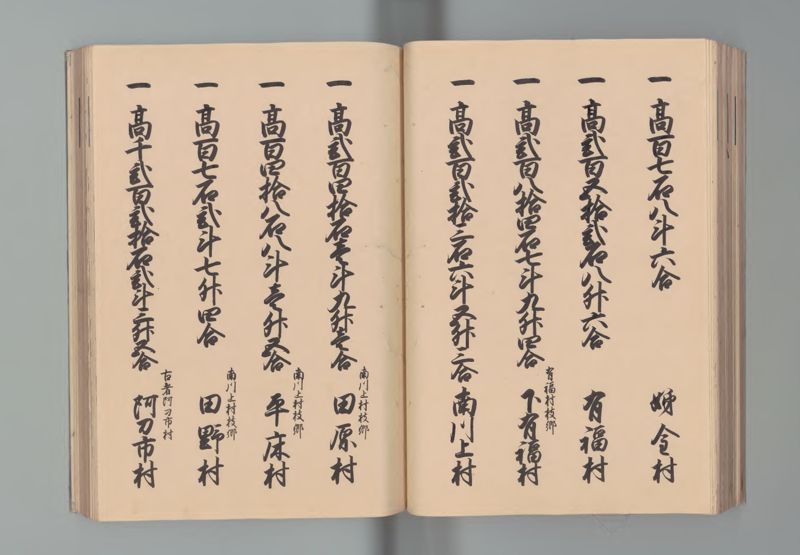 一 髙百七石八斗六合 姉倉村
一 髙弐百五拾弐石八升六合 有福村
一 髙弐百八拾四石七斗九升四合 有福村枝郷 下有福村
一 髙弐百弐拾三石六斗五升三合 南川上村
一 髙弐百四拾石壱斗九升壱合 南川上村枝郷 田原村
一 髙百四拾八石八斗壱升五合 南川上村枝郷 平床村
一 髙百七石弐斗七升四合 南川上村枝郷 田野村
一 髙千弐百弐拾石弐斗三升五合 古者阿刀市村 阿刀市村